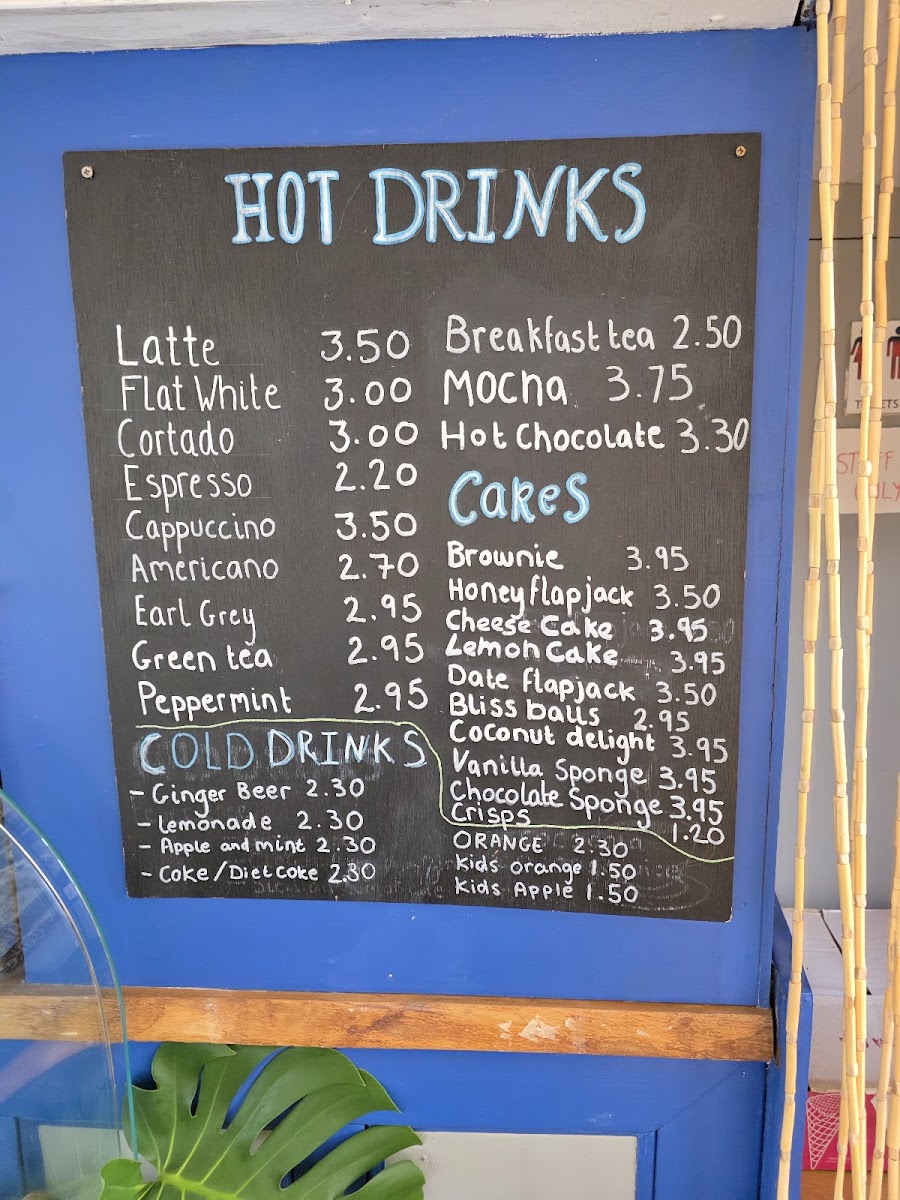 HOT DRINKS
Latte 3.50
Flat White 3.00
Cortado 3.00
Espresso 2.20
Cappuccino 3.50
Americano 2.70
Earl Grey 2.95
Green tea 2.95
Peppermint 2.95
Breakfast tea 2.50
Mocha 3.75
Hot Chocolate 3.30
Cakes
Brownie 3.95
Honey flapjack 3.50
Cheese Cake 3.95
Lemon Cake 3.95
Date flapjack 3.50
Bliss balls 2.95
Coconut delight 3.95
Vanilla Sponge 3.95
Chocolate Sponge 3.95
Crisps 1.20
COLD DRINKS
- Ginger Beer 2.30
- Lemonade 2.30
- Apple and mint 2.30
- Coke / Diet coke 2.30
ORANGE 2.30
Kids orange 1.50
Kids Apple 1.50